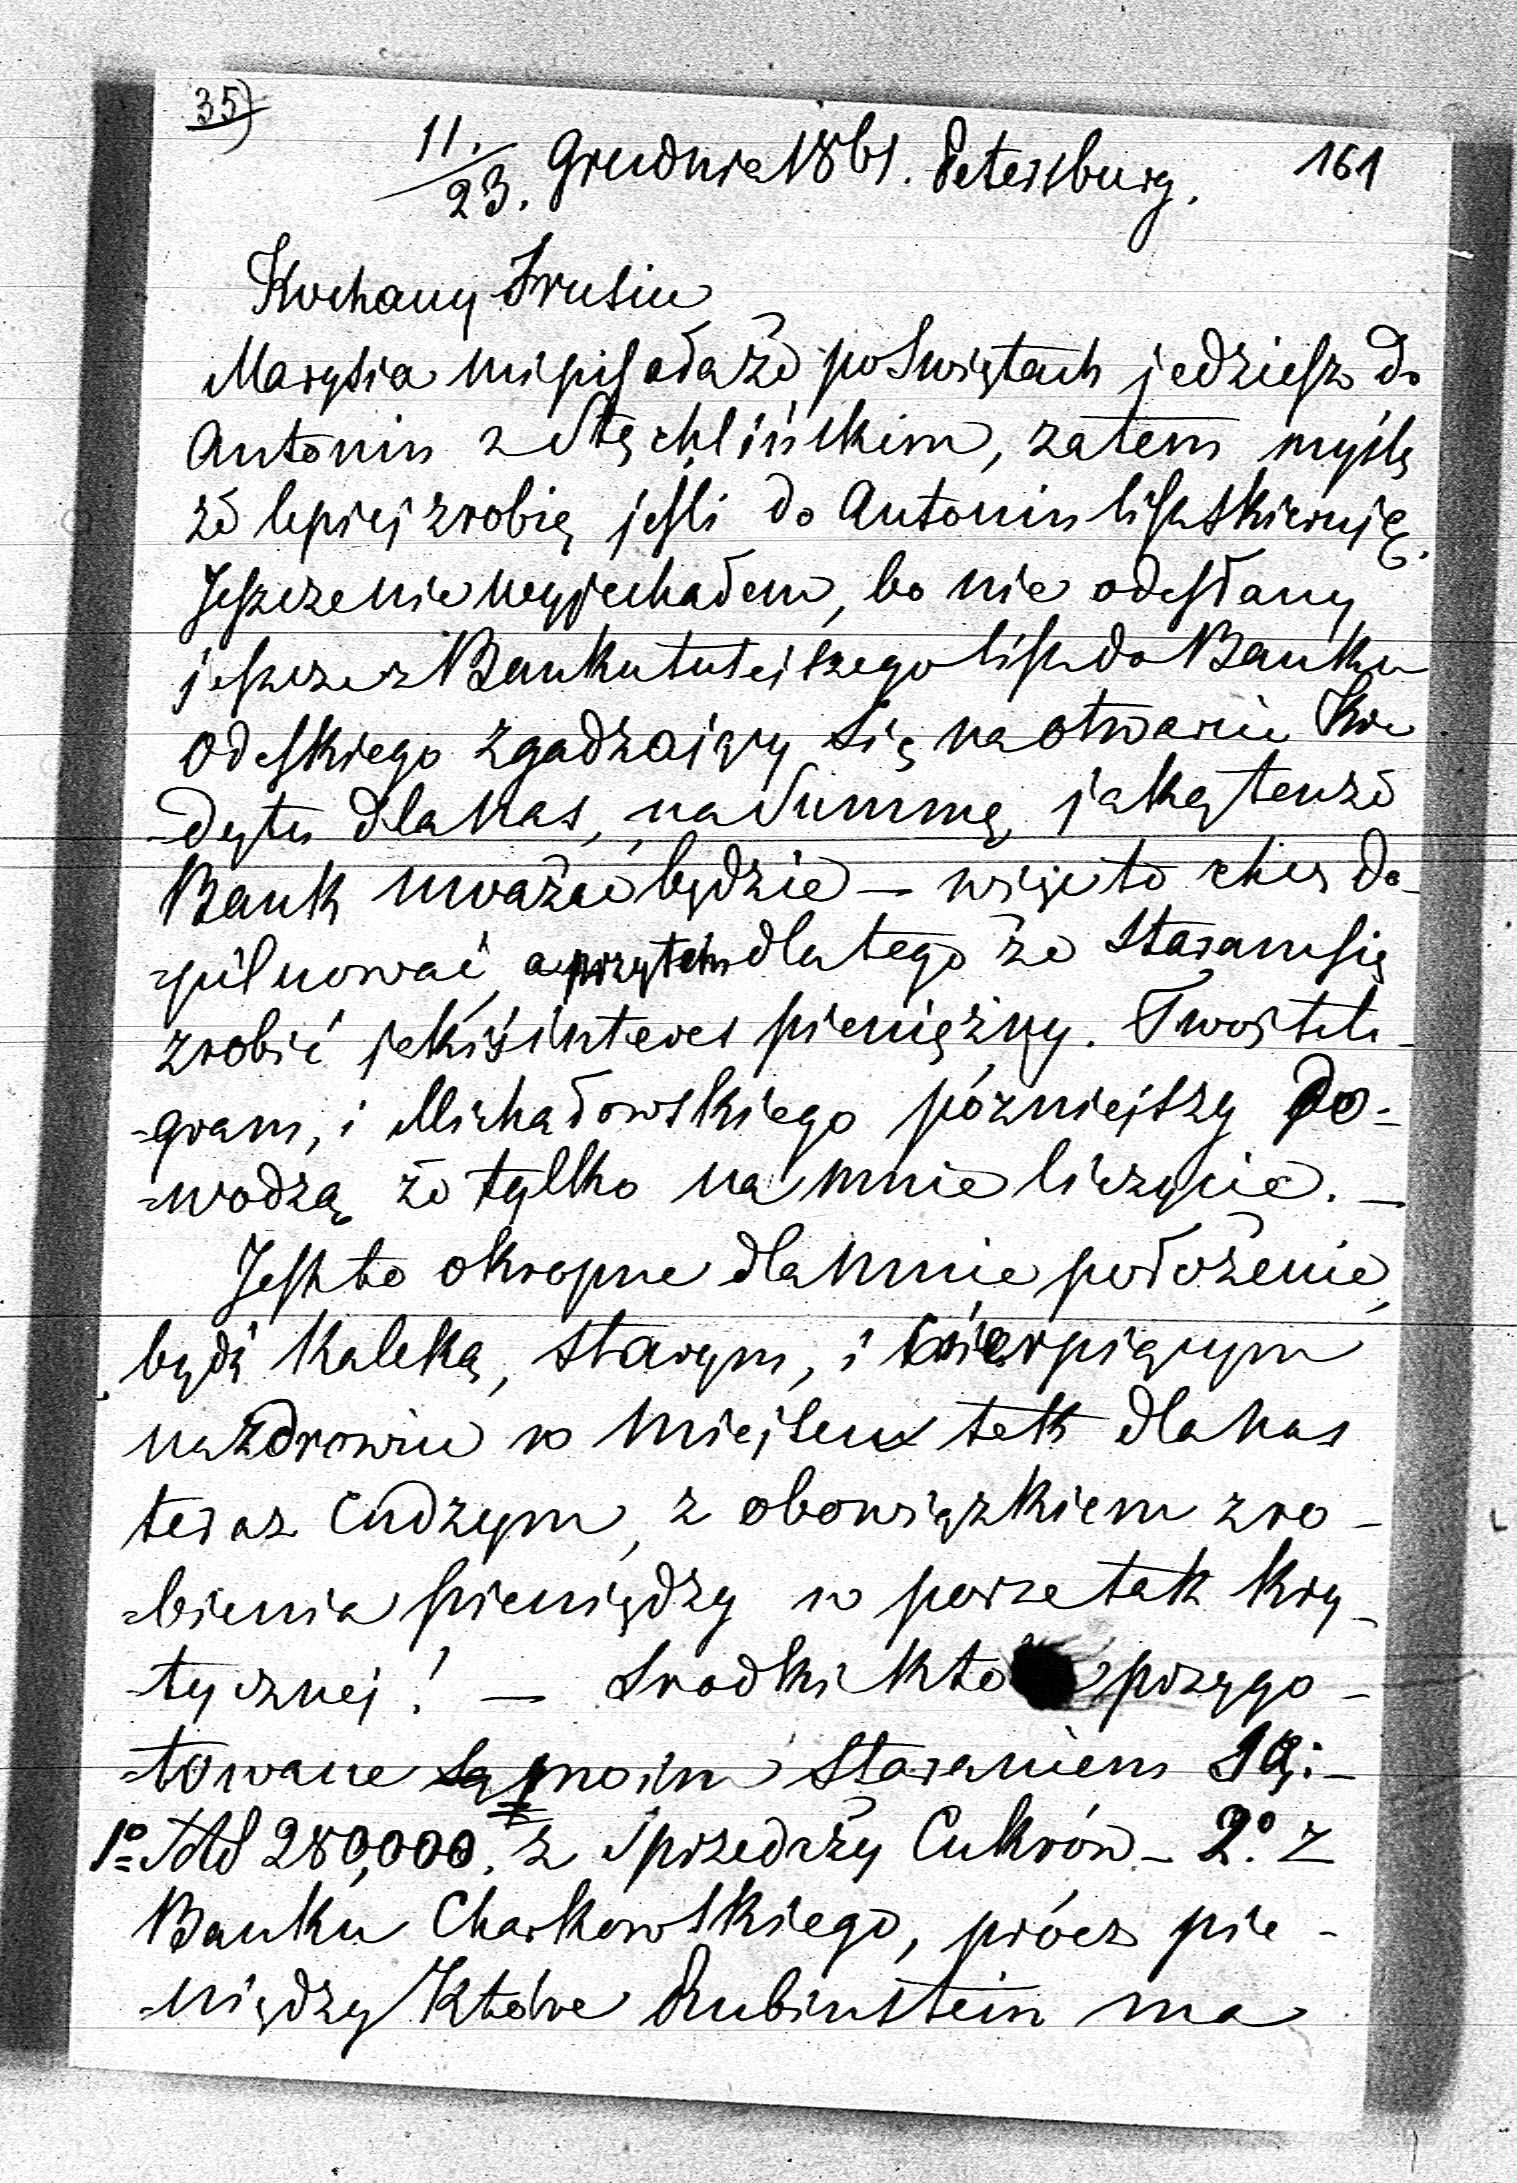 35)
11./23. Grudnia 1861. Petersburg.
161
Kochany Srusiu
Marysia mi pisała że po Swiętach jedziesz do
Antonin z Stęchlińskim, zatem myślę
że lepiej zrobię jeśli do Antonin list skieruję.
Jeszcze nie wyjechałem, bo nie odesłany
jeszcze z Banku tutejszego list do Banku
Odeskiego zgadzaiący się na otwarcie Kre
-dytu dla nas, na Summę jaką tenże
Bank uważać będzie — więc to chcę do-
-pilnować, a przytem dlatego że staram się
zrobić jakiś interes pieniężny. Twój tele-
-gram, i Michałowskiego pózniejszy do-
-wodzą że tylko na mnie liczycie. —
Jest to okropne dla mnie położenie,
być kaleką, starym, i cierpiącym
na zdrowiu w miejscu tak dla nas
teraz cudzym, z obowiązkiem zro-
-bienia pieniędzy w porze tak kry-
-tycznej! — Srodki które przygo-
-towane są moim staraniem są: –
1º 280,000. z Sprzedaży Cukrów – 2º. Z
Banku Charkowskiego, prócz pie-
-niędzy które Rubinstein ma